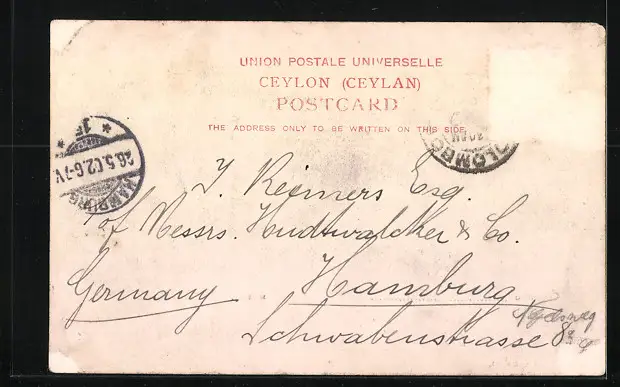 UNION POSTALE UNIVERSELLE
CEYLON (CEYLAN)
POSTCARD
THE ADDRESS ONLY TO BE WRITTEN ON THIS SIDE
HAMBURG
26.5.02.6-7V.
* 1F *
COLOMBO
J. Reimers Esq.
c/of Messrs. Hudtwalcker & Co.
Hamburg
Germany
Schwabenstrasse